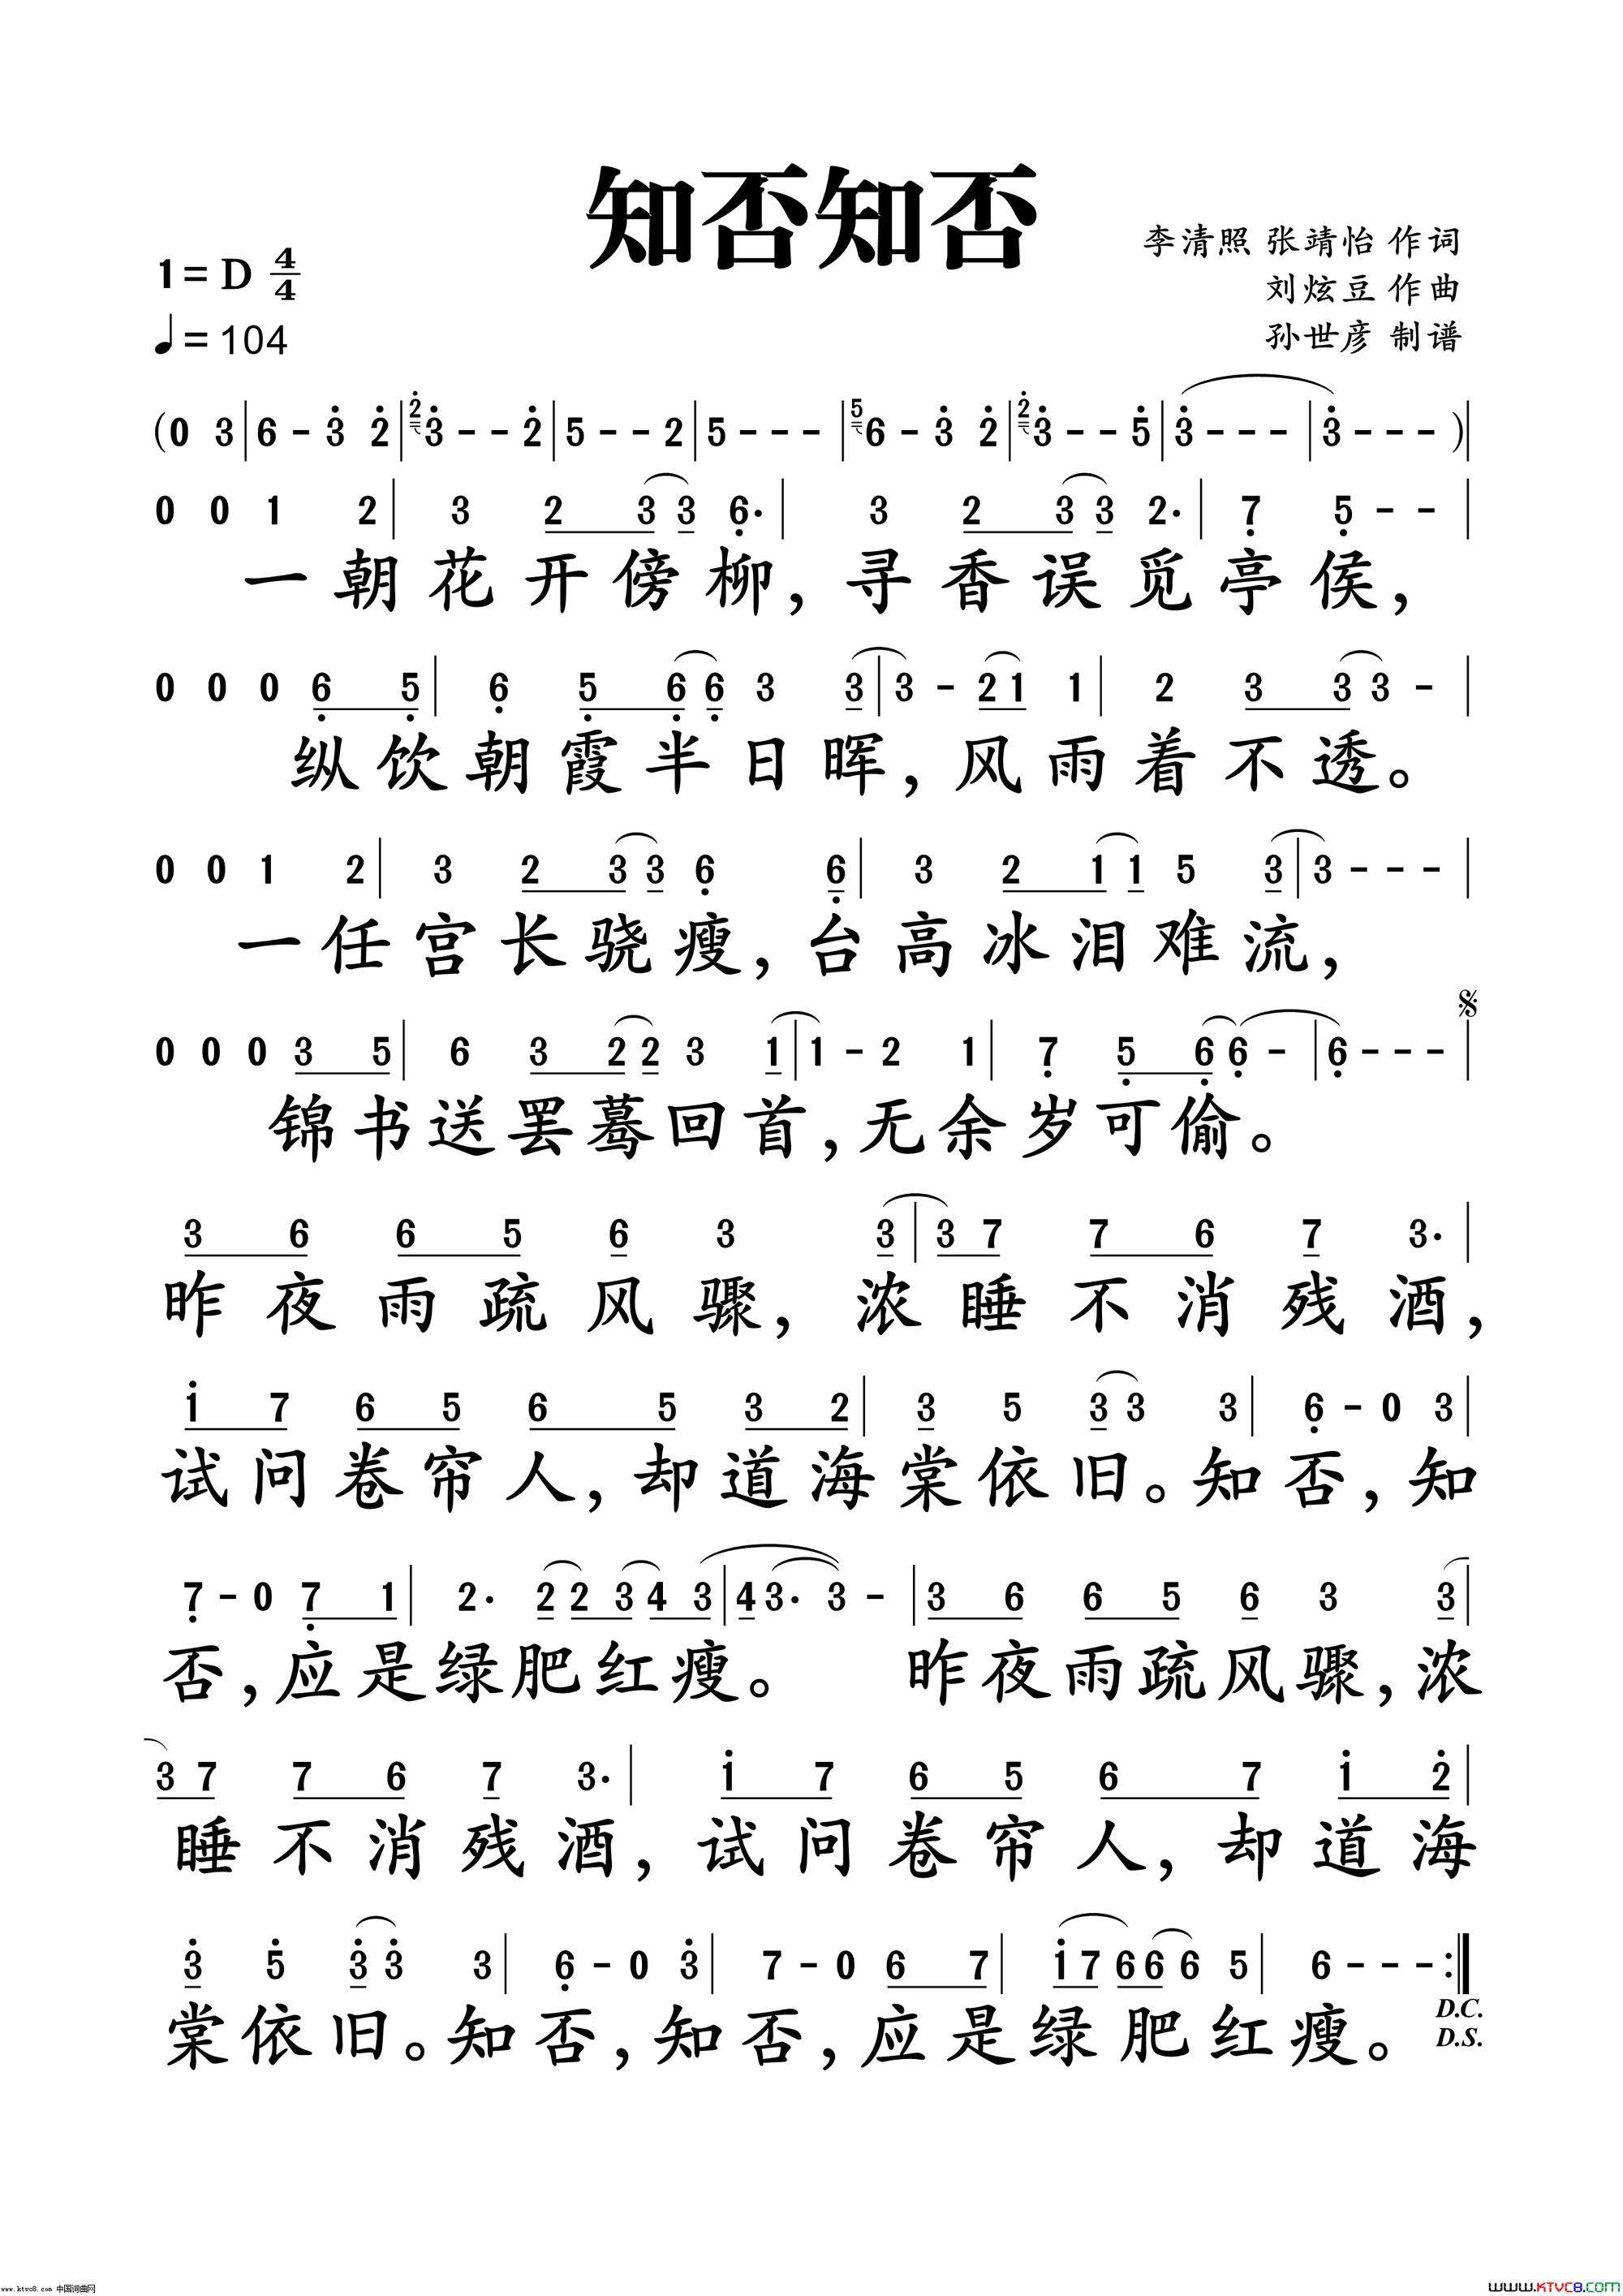 知否知否
1=D 4/4
李清照 张靖怡 作词
刘炫豆 作曲
♩=104
孙世彦 制谱
(0 3|6 - 3 2|2 3 - - 2|5 - - 2|5 - - -|5 6 - 3 2|2 3 - - 5|3 - - -|3 - - -)|
0 0 1 2|3 2 3 3 6.|3 2 3 3 2.|7 5 - -|
一朝花开傍柳,寻香误觅亭侯,
0 0 0 6 5|6 5 6 6 3 3|3 - 2 1 1|2 3 3 3 -|
纵饮朝霞半日晖,风雨着不透。
0 0 1 2|3 2 3 3 6 6|3 2 1 1 5 3|3 - - -|
一任宫长骁瘦,台高冰泪难流,
0 0 0 3 5|6 3 2 2 3 1|1 - 2 1|7 5 6 6 -|6 - - -|
锦书送罢蓦回首,无余岁可偷。
3 6 6 5 6 3 3|3 7 7 6 7 3.|
昨夜雨疏风骤,浓睡不消残酒,
1 7 6 5 6 5 3 2|3 5 3 3 3|6 - 0 3|
试问卷帘人,却道海棠依旧。知否,知
7 - 0 7 1|2. 2 2 3 4 3|4 3. 3 -|3 6 6 5 6 3 3|
否,应是绿肥红瘦。 昨夜雨疏风骤,浓
3 7 7 6 7 3.|1 7 6 5 6 7 1 2|
睡不消残酒,试问卷帘人,却道海
3 5 3 3 3|6 - 0 3|7 - 0 6 7|1 7 6 6 6 5|6 - - -:|
D.C.
棠依旧。知否,知否,应是绿肥红瘦。
D.S.
www.ktvc8.com 中国词曲网
WWW.KTVC8.COM